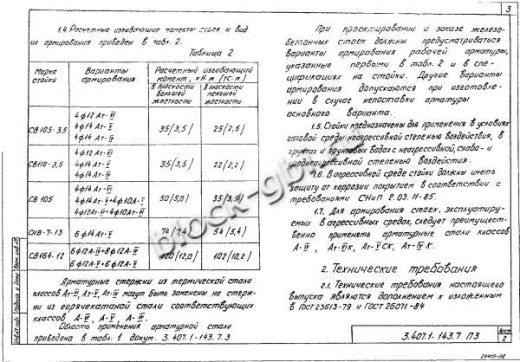 3
1.4. Расчетные изгибающие моменты стоек и вид
их армирования приведен в табл. 2.
Таблица 2
Марка стойки
Варианты армирования
Расчетный изгибающий момент, кН·м (тс·м)
в плоскости большей жесткости
в плоскости меньшей жесткости
СВ105-3,5
4ф12 Ат-VI
4ф14 Ат-V
4ф14 Ат-IV
35(3,5)
25(2,5)
СВ110-3,5
4ф14 Ат-V
35(3,5)
22(2,2)
СВ 105
4ф14 Ат-VI
50(5,0)
35(3,5)
6ф14 Ат-V
74(7,4)
54(5,4)
СВ164-12
120(12,0)
102(10,2)
Арматурные стержни из термической стали
классов Ат-VI, Ат-V, Ат-IV могут быть заменены на стерж-
ни из горячекатаной стали соответствующих
классов А-VI, А-V, А-IV.
Область применения арматурной стали
приведена в табл. 1 докум. 3.407.1-143.7.3.
При проектировании и заказе железо-
бетонных стоек должны предусматриваться
варианты армирования рабочей арматуры,
указанные первыми в табл. 2 и в спе-
цификациях на стойки. Другие варианты
армирования допускаются при изготовле-
нии в случае непоставки арматуры
основного варианта.
1.5. Стойки предназначены для применения в условиях
газовой среды неагрессивной степенью воздействия, в
грунтах и грунтовых водах с неагрессивной, слабо- и
среднеагрессивной степенью воздействия.
1.6. В агрессивной среде стойки должны иметь
защиту от коррозии покрытием в соответствии с
требованиями СНиП 2.03.11-85.
1.7. Для армирования стоек, эксплуатируе-
мых в агрессивных средах, следует преимуществен-
но применять арматурные стали классов
2. Технические требования
2.1. Технические требования настоящего
выпуска являются дополнением к изложенным
в ГОСТ 23613-79 и ГОСТ 26071-84
3.407.1-143.7 ПЗ
Лист
2
block-gbi.ru